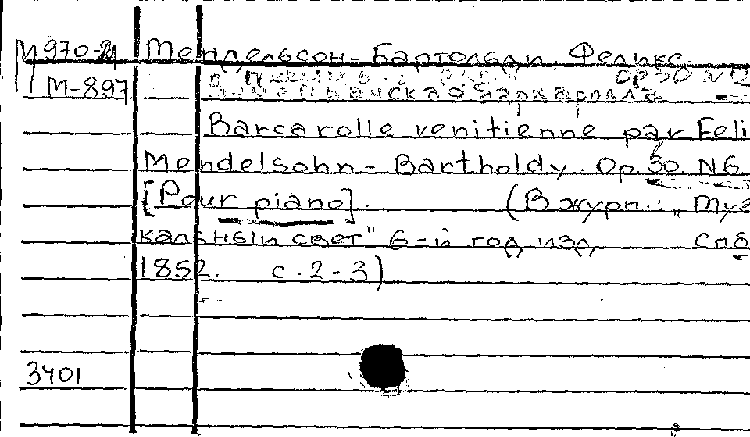 М970-21 Мендельсон-Бартольди Феликс
М-897 Венецианская баркаролла
Barcarolle venitienne par Feli
Mendelsohn-Bartholdy. Op. 30 N6
[Pour piano]. (В журн.: „Музы
кальный свет" 6-й год изд. Спб
1852. с. 2-3)
3401